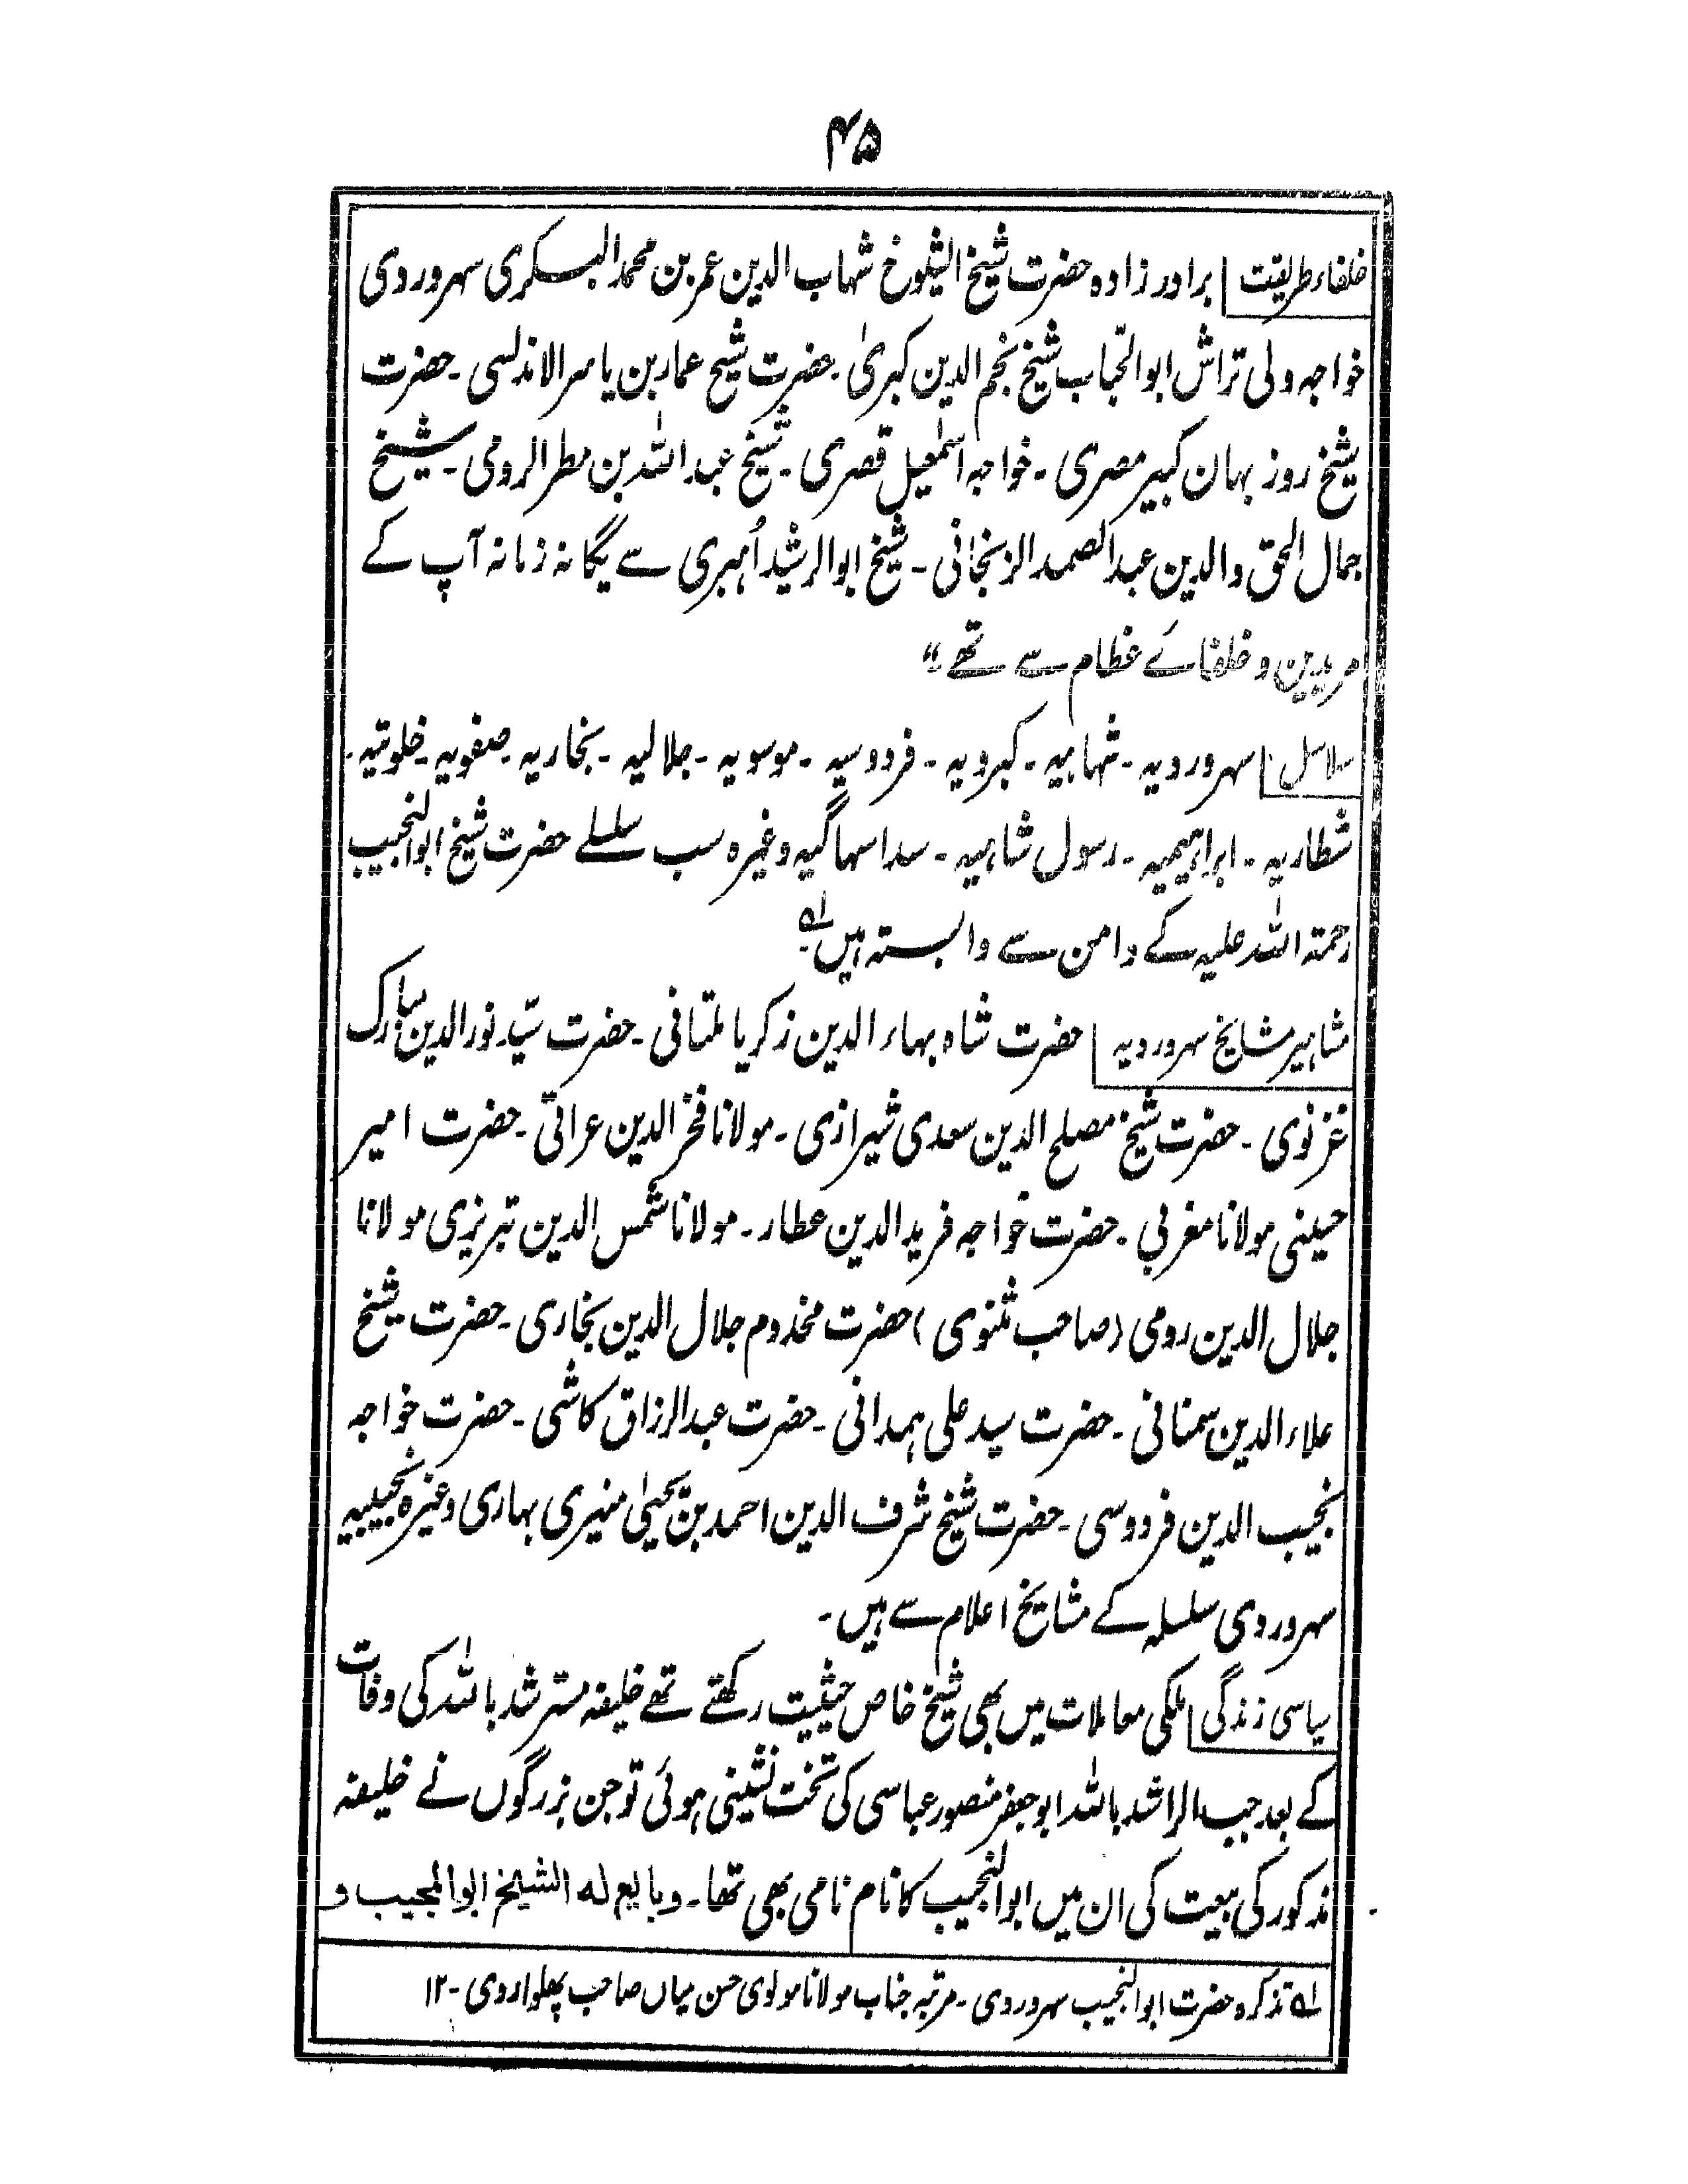 ۴۵
خلفاء طریقت برادر زادہ حضرت شیخ الشیوخ شہاب الدین عمر بن محمد البسکری سہروردی
خواجہ ولی تراش ابو الجناب شیخ نجم الدین کبریٰ ۔ حضرت شیخ عمار بن یاسر الاندلسی ۔ حضرت
شیخ روز بہان کبیر مصری ۔ خواجہ اسمٰعیل قصری ۔ شیخ عبد اللہ بن مطر الرومی ۔ شیخ
جمال الحق والدین عبد الصمد الزنجانی ۔ شیخ ابو الرشید اُہبری سے یگانہ زمانہ آپ کے
مریدین و خلفائے عظام سے تھے ”
سلاسل سہروردیہ ۔ شہابیہ ۔ کبرویہ ۔ فردوسیہ ۔ موسویہ ۔ جلالیہ ۔ بخاریہ ۔ صفویہ ۔ خلوتیہ ۔
شطاریہ ۔ ابراہیمیہ ۔ رسول شاہیہ ۔ سدا سہاگیہ وغیرہ سب سلسلے حضرت شیخ ابو النجیب
رحمتہ اللہ علیہ کے دامن سے وابستہ ہیں ۔ لہ
مشاہیر مشایخ سہروردیہ حضرت شاہ بہاء الدین زکریا ملتانی ۔ حضرت سیّد نور الدین مبارک
غزنوی ۔ حضرت شیخ مصلح الدین سعدی شیرازی ۔ مولانا فخر الدین عراقی ۔ حضرت امیر
حسینی مولانا مغربی ۔ حضرت خواجہ فرید الدین عطار ۔ مولانا شمس الدین تبریزی مولانا
جلال الدین رومی (صاحب مثنوی) حضرت مخدوم جلال الدین بخاری ۔ حضرت شیخ
علاء الدین سمنانی ۔ حضرت سید علی ہمدانی ۔ حضرت عبد الرزاق کاشی ۔ حضرت خواجہ
نجیب الدین فردوسی ۔ حضرت شیخ شرف الدین احمد بن یحییٰ منیری بہاری وغیرہ نجیبیہ
سہروردی سلسلہ کے مشایخ اعلام سے ہیں ۔
سیاسی زندگی ملکی معاملات میں بھی شیخ خاص حیثیت رکھتے تھے خلیفہ مسترشد باللہ کی وفات
کے بعد جب الراشد باللہ ابو جعفر منصور عباسی کی تخت نشینی ہوئی تو جن بزرگوں نے خلیفہ
مذکور کی بیعت کی ان میں ابو النجیب کا نام نامی بھی تھا ۔ وبایع له الشیخ ابو المجیب و
لہ تذکرہ حضرت ابو النجیب سہروردی ۔ مرتبہ جناب مولانا مولوی حسن میاں صاحب پھلواروی ۔ ۱۲